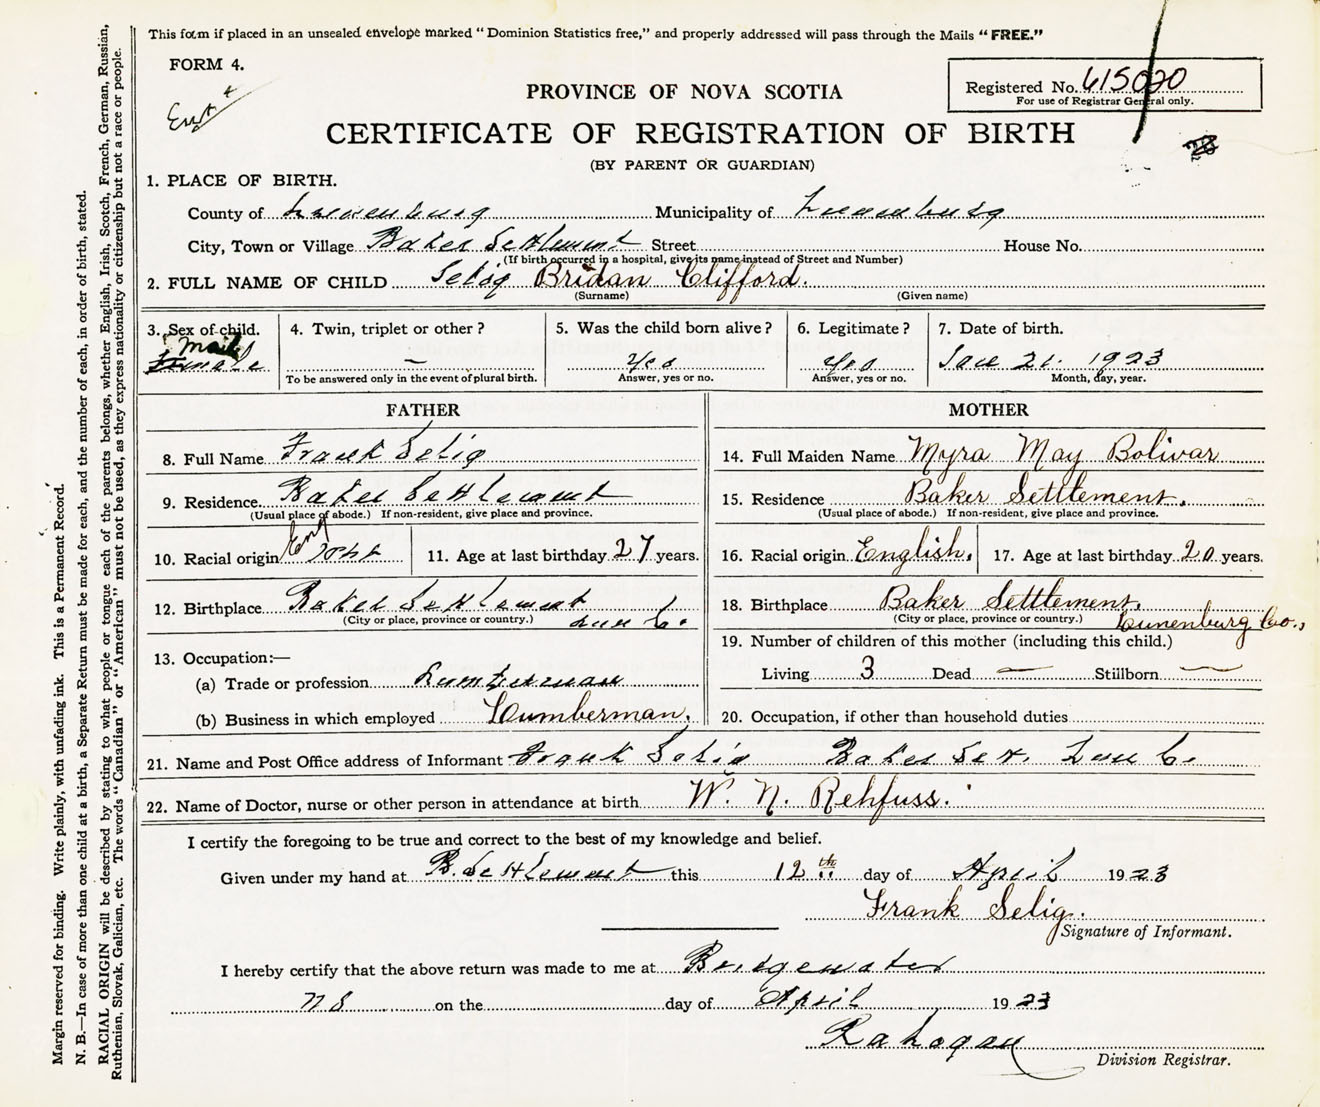 This form if placed in an unsealed envelope marked “Dominion Statistics free,” and properly addressed will pass through the Mails “FREE.”
FORM 4.
Registered No. 615020
For use of Registrar General only.
PROVINCE OF NOVA SCOTIA
CERTIFICATE OF REGISTRATION OF BIRTH
(BY PARENT OR GUARDIAN)
1. PLACE OF BIRTH.
County of Lunenburg Municipality of Lunenburg
City, Town or Village Baker Settlement Street House No.
(If birth occurred in a hospital, give its name instead of Street and Number)
2. FULL NAME OF CHILD Selig Bridan Clifford.
(Surname) (Given name)
3. Sex of child. 4. Twin, triplet or other? 5. Was the child born alive? 6. Legitimate? 7. Date of birth.
Male
Female — Yes Yes Jan 21. 1923
To be answered only in the event of plural birth. Answer, yes or no. Answer, yes or no. Month, day, year.
FATHER
8. Full Name Frank Selig
9. Residence Baker Settlement
(Usual place of abode.) If non-resident, give place and province.
10. Racial origin Eng 11. Age at last birthday 27 years.
12. Birthplace Baker Settlement
(City or place, province or country.) Lun Co.
13. Occupation:—
(a) Trade or profession Lumberman
(b) Business in which employed Lumberman.
MOTHER
14. Full Maiden Name Myra May Bolivar
15. Residence Baker Settlement.
(Usual place of abode.) If non-resident, give place and province.
16. Racial origin English. 17. Age at last birthday 20 years.
18. Birthplace Baker Settlement,
(City or place, province or country.) Lunenburg Co.,
19. Number of children of this mother (including this child.)
Living 3 Dead — Stillborn —
20. Occupation, if other than household duties
21. Name and Post Office address of Informant Frank Selig Baker Set. Lun C.
22. Name of Doctor, nurse or other person in attendance at birth W. N. Rehfuss.
I certify the foregoing to be true and correct to the best of my knowledge and belief.
Given under my hand at B. Settlement this 12th day of April 1923
Frank Selig.
Signature of Informant.
I hereby certify that the above return was made to me at Bridgewater
NS on the day of April 1923
Division Registrar.
Margin reserved for binding. Write plainly, with unfading ink. This is a Permanent Record.
N. B.—In case of more than one child at a birth, a Separate Return must be made for each, and the number of each, in order of birth, stated.
RACIAL ORIGIN will be described by stating to what people or tongue each of the parents belongs, whether English, Irish, Scotch, French, German, Russian,
Ruthenian, Slovak, Galician, etc. The words “Canadian” or “American” must not be used, as they express nationality or citizenship but not a race or people.